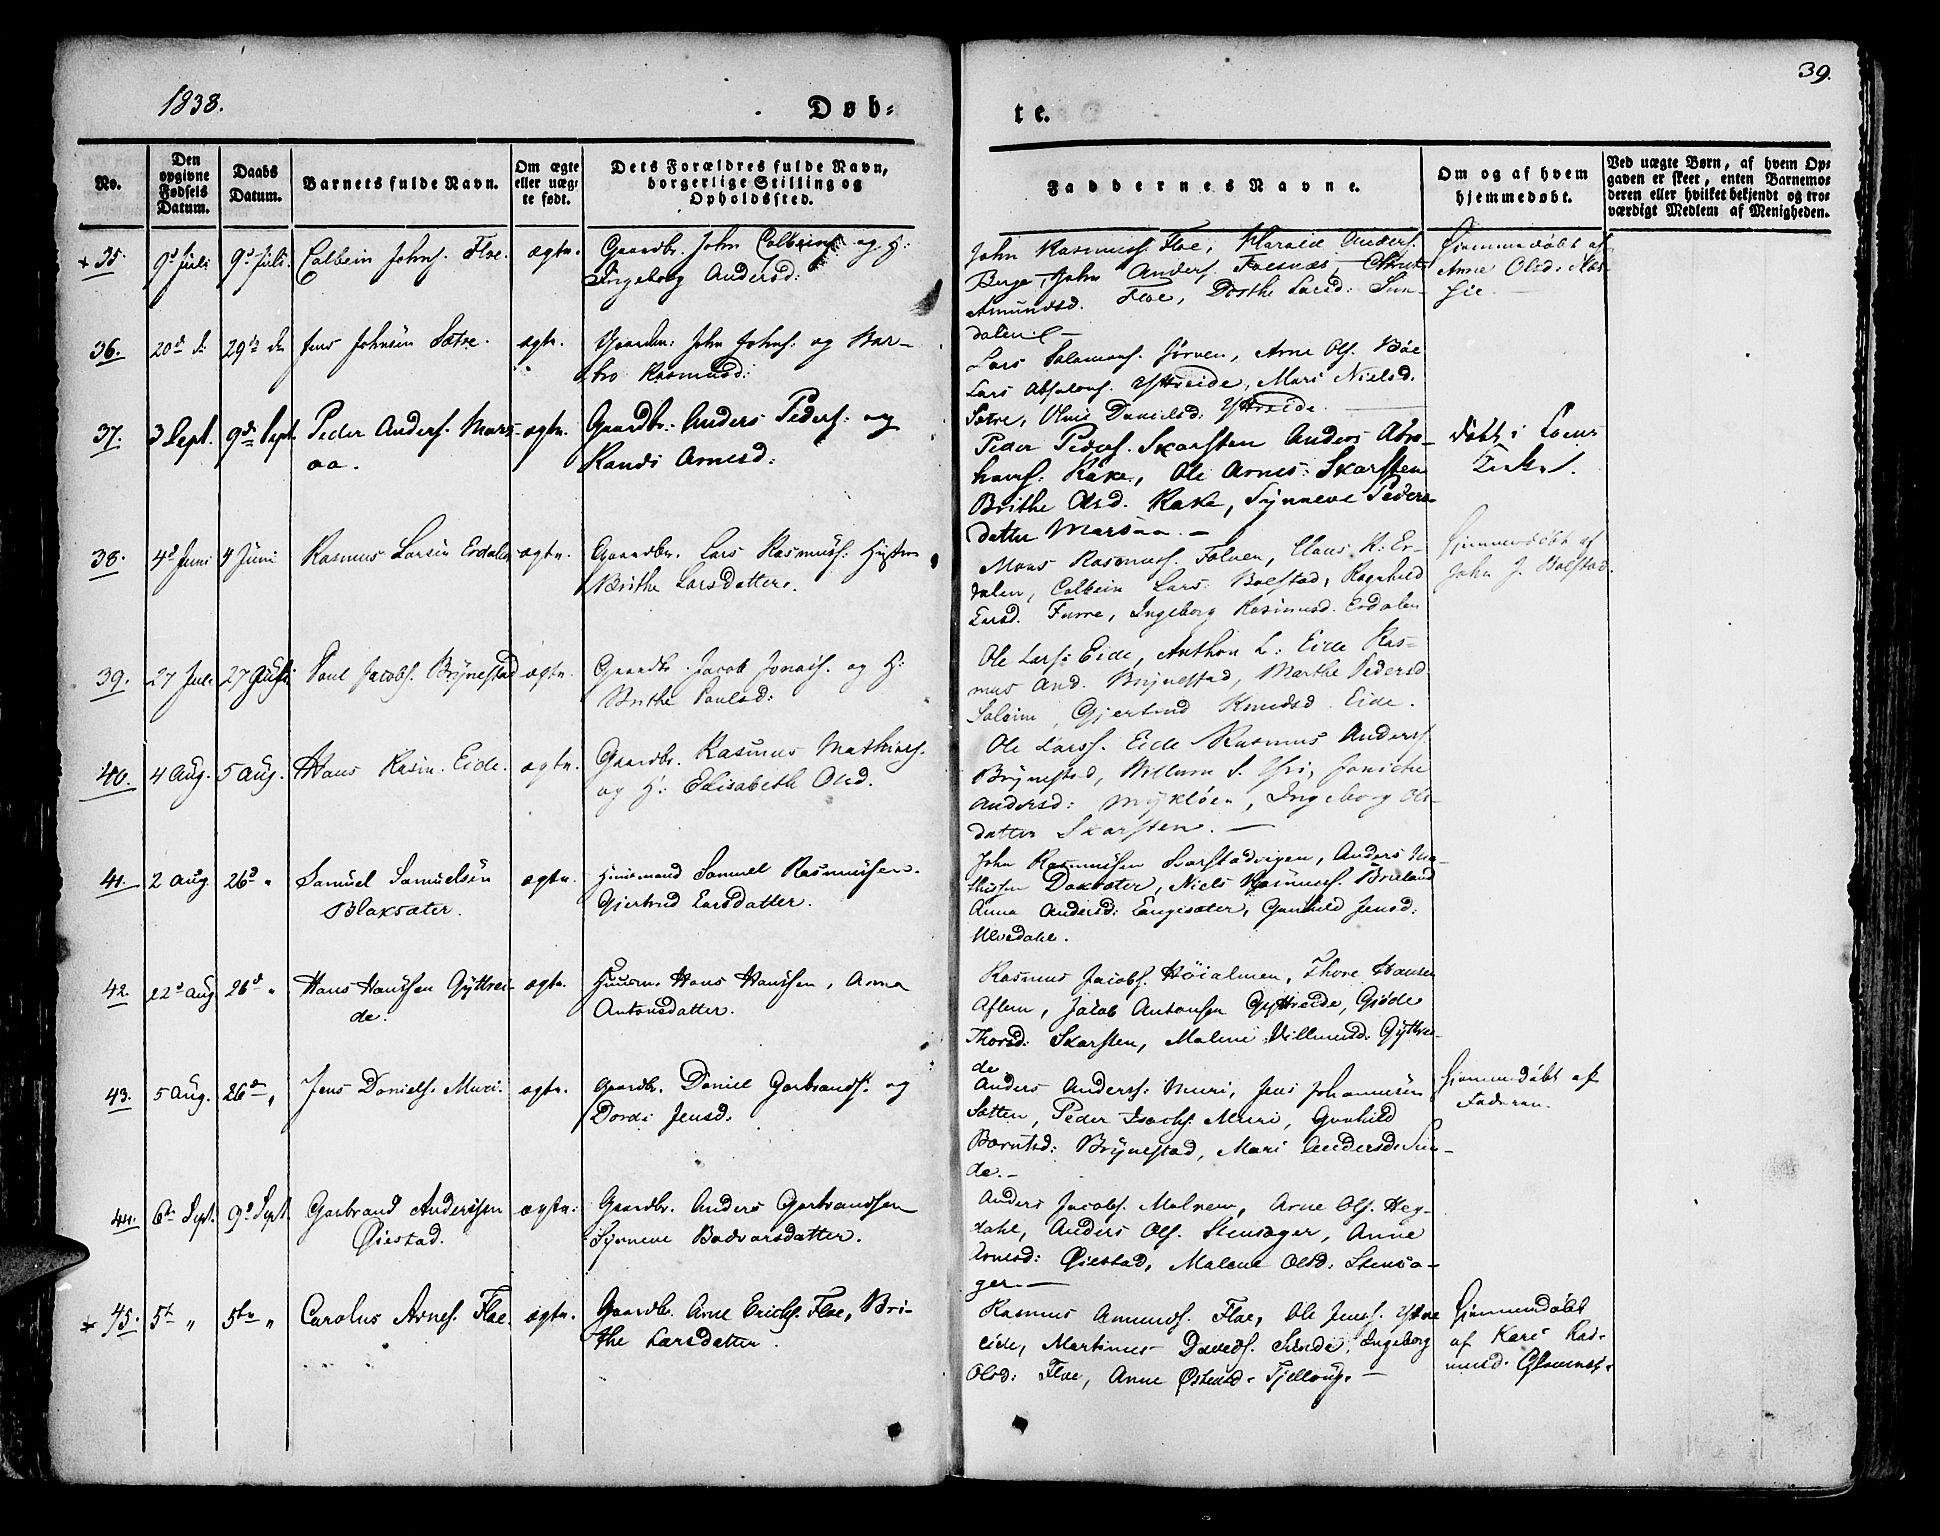 1838.
Døb-
te.
39.
No.
Den opgivne Fødsels Datum.
Daabs Datum.
Barnets fulde Navn.
Om ægte eller uægte født.
Dets Forældres fulde Navn, borgerlige Stilling og Opholdssted.
Faddernes Navne.
Om og af hvem hjemmedøbt.
Ved uægte Børn, af hvem Opgaven er skeet, enten Barnemoderen eller hvilket bekjendt og troværdigt Medlem af Menigheden.
+ 35. 9d Juli 9d Juli. Colbein Johns. Floe. ægte. Gaardbr. John Colbeins og H:
Ingeborg Andersd:
John Rasmuss. Floe, Harald Anders.
Berge, John Anders. Foesnæs,
Amundsd. Floe, Dorthe Larsd: Sun-
dalen.
Hjemmedøbt af
Anne Olsd:
36. 20d 29d Jens Johnsen Sætre. ægte. Gaardbr: John Johns: og Bar-
bro Rasmusd:
Lars Salamons. Jørven, Arne Ols. Bøe
Lars Absalons. Yttreide, Mari Nielsd.
Sætre, Danielsd: Yttreide.
37. 3 Sept. 9de Sept. Peder Anders. Mars-
aa. ægte. Gaardbr: Anders Peders. og
Randi Arnesd:
Peder Peders. Skarsten Anders Abra-
hams. Rake, Ole Arnes: Skarsten
Brithe Olsd. Rake, Synneve Peders-
datter Marsaa. -
Døbt i Loens
Kirke.
38. 4d Juni 4 Juni Rasmus Larsen Erdalen ægte. Gaardbr. Lars Rasmuss: Hustru
Brithe Larsdatter.
Mons Rasmuss. Folven, Claus R: Er-
dalen, Colbein Lars: Bolstad, Ragnhild
Larsd. Furre, Ingeborg Rasmusd. Erdalen
Hjemmedøbt af
John J. Bolstad.
39. 27 Juli 27 Juli Poul Jacobs. Brynestad ægte. Gaardbr. Jacob Jonais. og H:
Brithe Poulsd:
Ole Lars: Eide, Anthon L: Eide Ras-
mus And. Brynestad, Marthe Pedersd
Soleim, Gjertrud Knudsd. Eide.
40. 4 Aug. 5 Aug. Hans Rasm. Eide. ægte. Gaardbr. Rasmus Mathias.
og H: Elisabeth Olsd.
Ole Larss. Eide Rasmus Anders.
Brynestad, Willum S. Yri, Joniche
Andersd: Mykløen, Ingeborg Ols-
datter Skarsten. -
41. 2 Aug. 26d " Samuel Samuelsen
Blaksæter. ægte. Samuel Rasmussen.
Gjertrud Larsdatter.
John Rasmussen Skarstadvigen, Anders Ma-
thissen Dokseter, Niels Rasmuss. Brieland
Anna Andersd: Langesæter, Gunhild Jensd:
Ulvedahl.
42. 22d Aug 26d " Hans Hanssen Gyttrei-
de. ægte. Huusm. Hans Hanssen, Anna
Antonsdatter.
Rasmus Jacobs. Høialmen, Thore Hansen
Aflem, Jacob Antonsen Gyttreide, Gjøde
Thorsd: Skarsten, Malene Villumsd: Gyttrei-
de
43. 5 Aug. 26de " Jens Daniels. Muri. ægte. Gaardbr. Daniel Garbrands. og
Dordi Jensd:
Anders Anders: Muri, Jens Johannesen
Sætten, Peder Isachs. Muri, Gunhild
Berntsd: Brynestad, Mari Andersd: Sun-
de. -
Hjemmedøbt af
Faderen.
44. 6te Sept. 9d Sept. Garbrand Anderssen
Øiestad. ægte. Gaardbr. Anders Garbrandsen
Synneve Bødvarsdatter.
Anders Jacobs. Malnem, Arne Ols. Heg-
dahl, Anders Ols. Stensager, Anne
Arnesd: Øiestad, Malene Olsd: Stensa-
ger
+ 45. 5te " 5te " Carolus Arnes. Floe. ægte. Gaardbr. Arne Erichs. Floe, Bri-
the Larsdatter.
Rasmus Amunds. Floe, Ole Jenss. Yttre
eide, Martinus Davids. Sunde, Ingeborg
Olsd: Floe, Anne Østensd. Tjellaug. -
Hjemmedøbt
af Kari Ras-
musd. Glomnes.